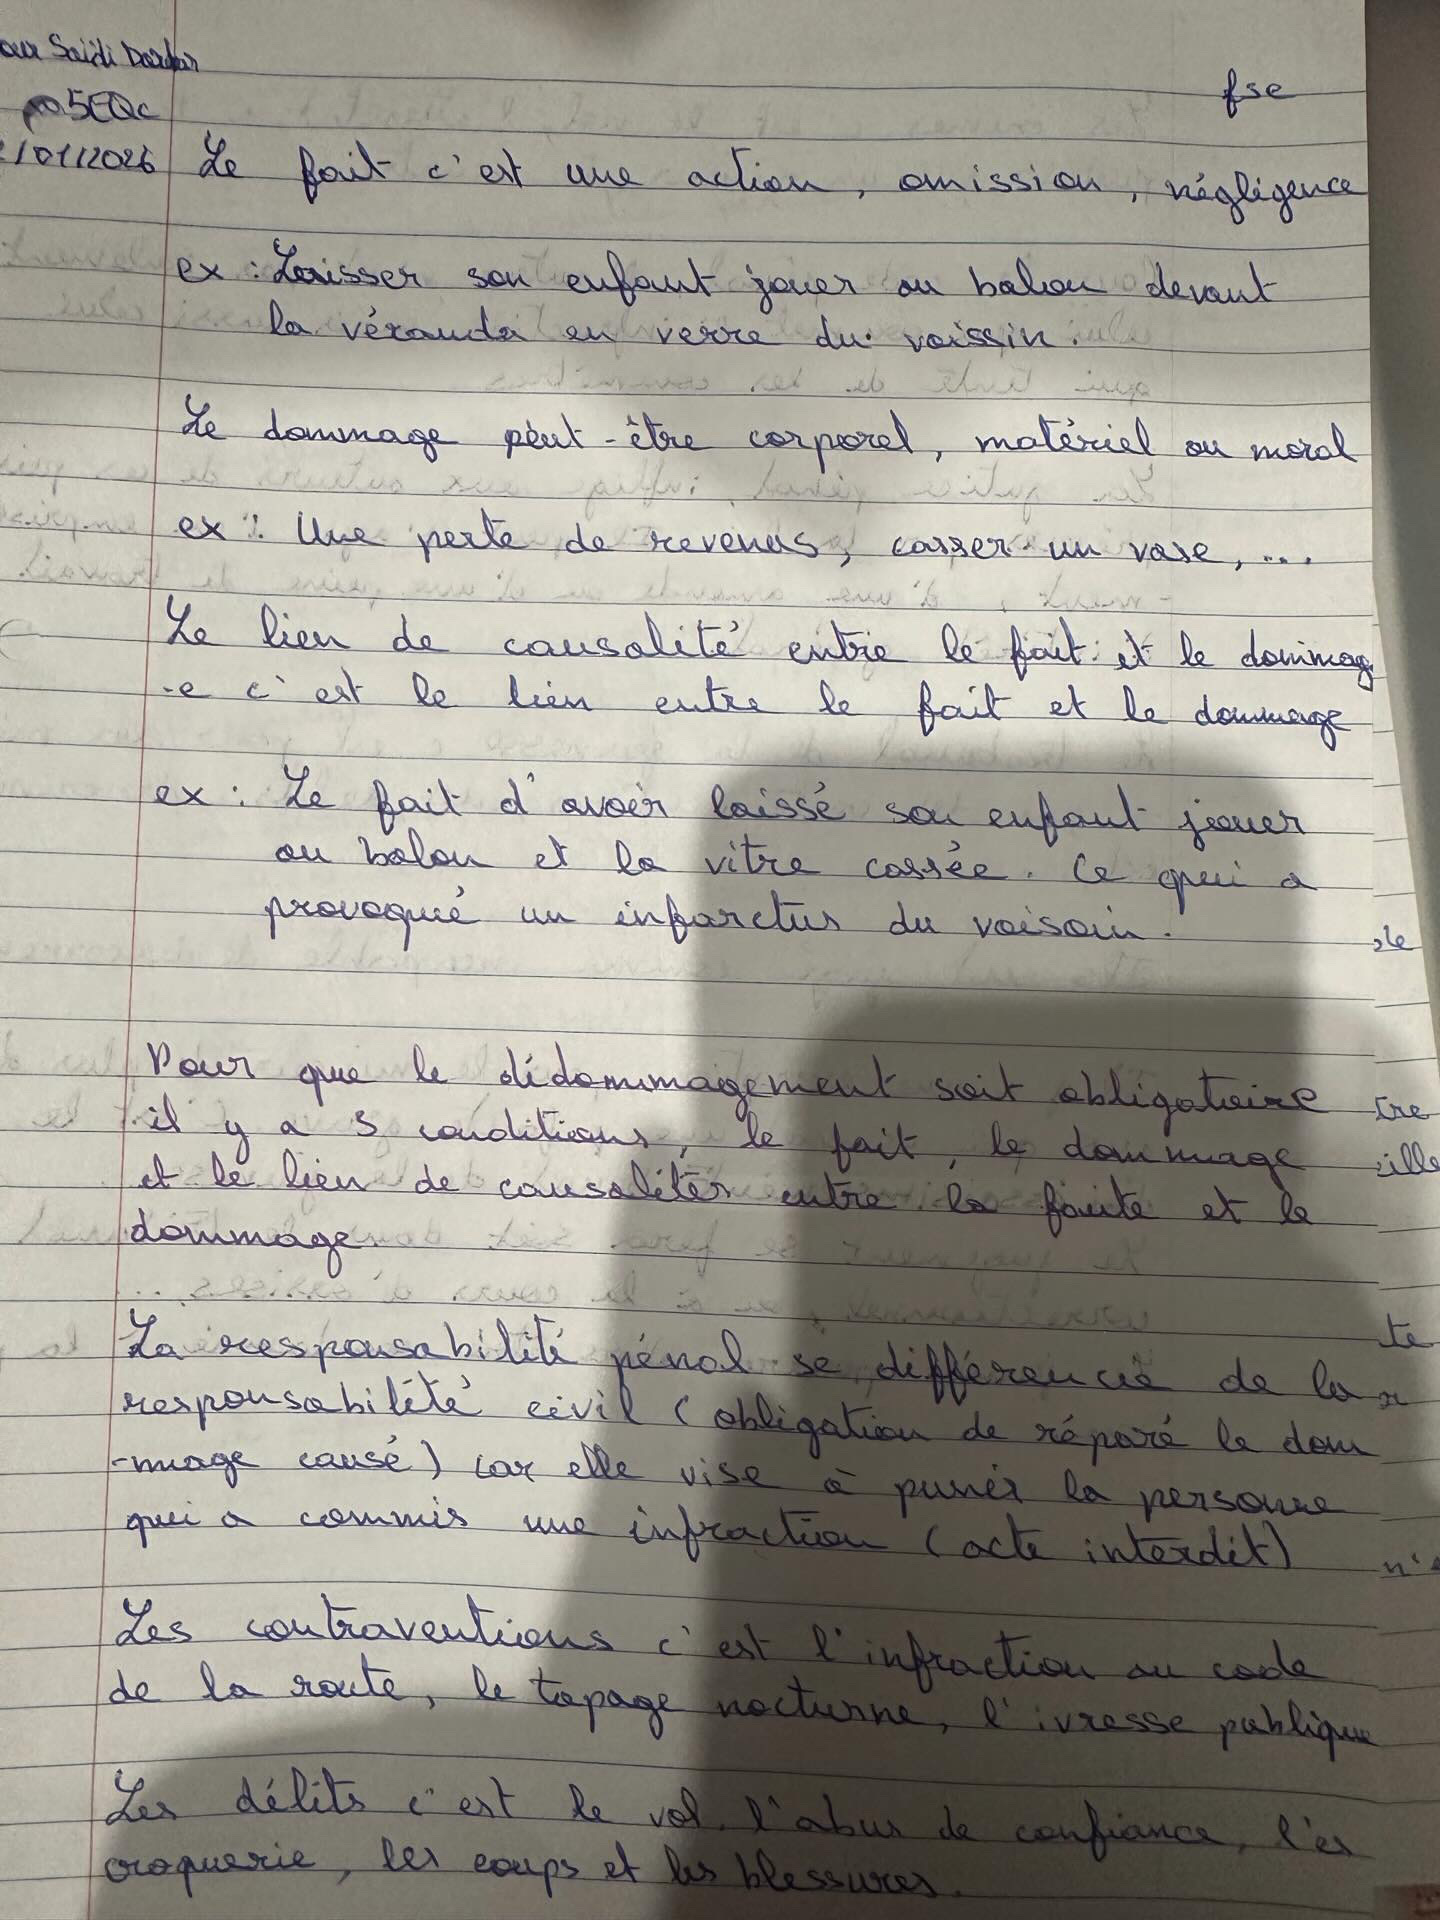 Saidi Dardar
fse
5EQc
/01/2026
Le fait c'est une action, omission, négligence
ex : Laisser son enfant jouer au balon devant
la véranda en verre du voissin.
Le dommage peut-être corporel, matériel ou moral
ex : Une perte de revenus, casser un vase, ...
Le lien de causalité entre le fait et le dommag
-e c'est le lien entre le fait et le dommage
ex : Le fait d'avoir laissé son enfant jouer
au balon et la vitre cassée. Ce qui a
provoqué un infarctus du voisoin.
Pour que le dédommagement soit obligatoire
il y a 3 conditions, le fait, le dommage
et le lien de causalités entre la faute et le
dommage.
La responsabilité pénal se différencie de la
responsabilité civil (obligation de réparé le dom
-mage causé) car elle vise à punir la personne
qui a commis une infraction (acte interdit)
Les contraventions c'est l'infraction au code
de la route, le tapage nocturne, l'ivresse publique
Les délits c'est le vol, l'abus de confiance, l'es
croquerie, les coups et les blessures.